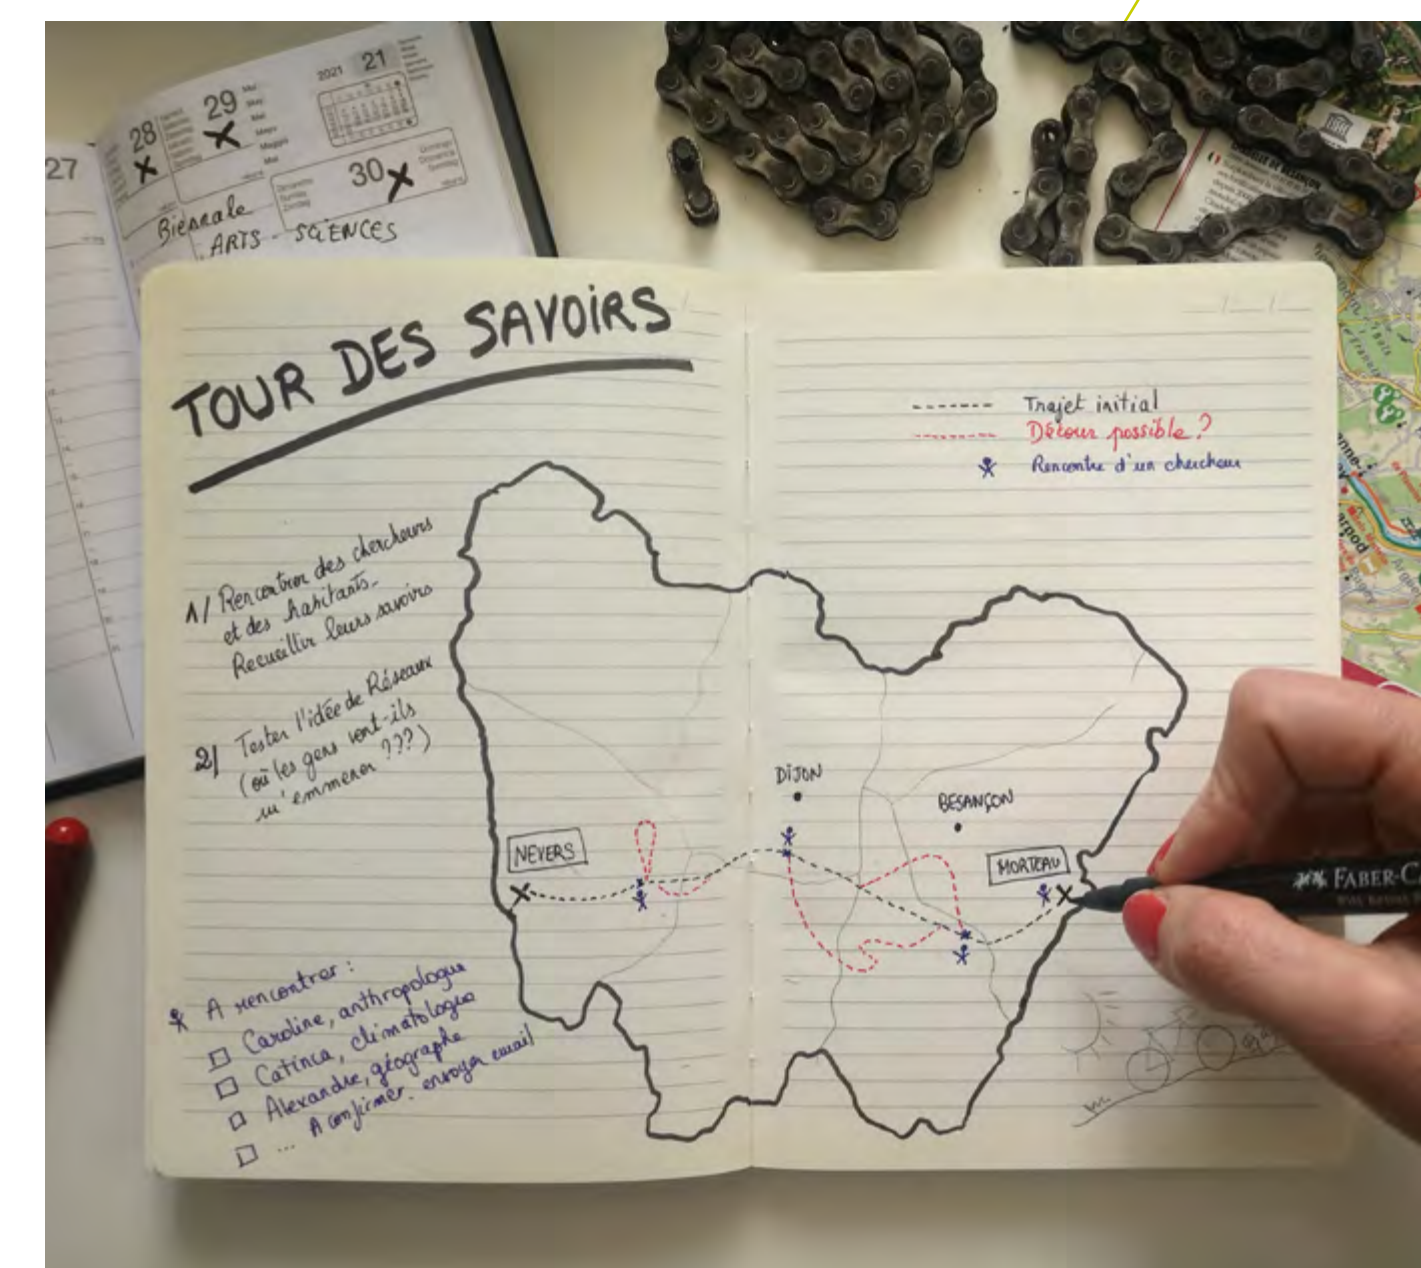 27
28
29
2021 21
30
Biennale
ARTS - SCIENCES
TOUR DES SAVOIRS
Trajet initial
Détour possible ?
Rencontre d'un chercheur
1/ Rencontrer des chercheurs
et des habitants.
Recueillir leurs savoirs
2/ Tester l'idée de Réseaux
(où les gens vont-ils
m'emmener ???)
DIJON
BESANÇON
NEVERS
MORTEAU
FABER-CA
A rencontrer :
Caroline, anthropologue
Catinca, climatologue
Alexandre, géographe
... A confirmer. envoyer email